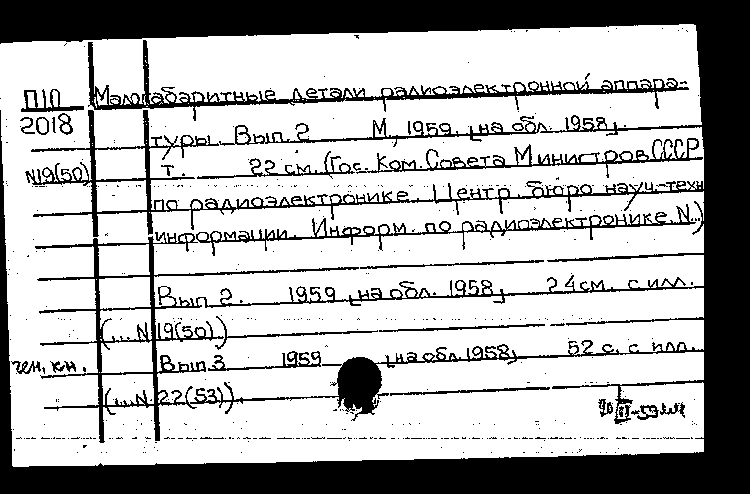 П10 Малогабаритные детали радиоэлектронной аппара-
2018
туры. Вып. 2 М, 1959. [на обл. 1958].
N19(50) т. 22 см. (Гос. Ком. Совета Министров СССР
по радиоэлектронике. Центр. бюро науч.-техн
информации. Информ. по радиоэлектронике. N...)
Вып 2. 1959 [на обл. 1958] 24см. с илл.
(...N 19(50))
чен. кн. Вып. 3 1959 [на обл 1958] 52 с. с илл.
(...N 22(53)).